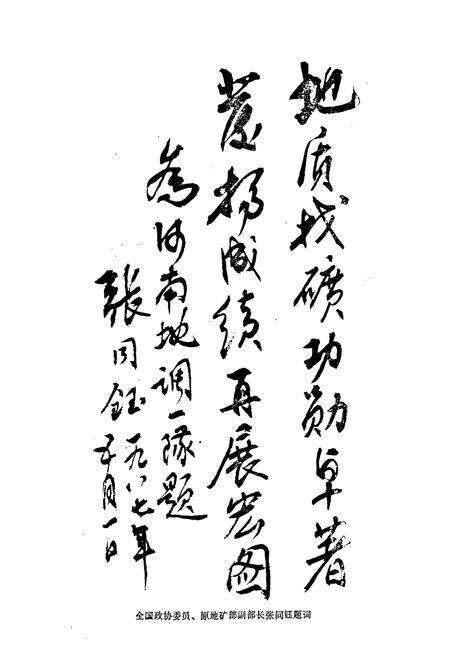 地质找礦功勋卓著
发扬成绩再展宏图
为河南地调一队题
张同钰 一九八七年
五月一日
全国政协委员、原地矿部副部长张同钰题词